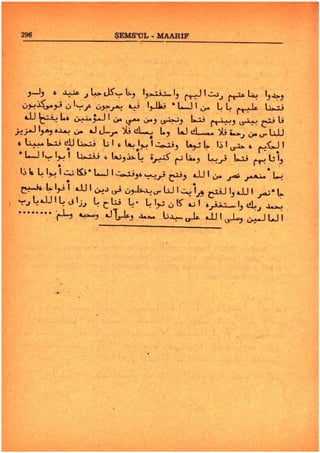 296 ŞEMS'ÜL - MAARİF
وجدوا بضاعتهم ردت اليهم واستفتحوا وخاب كل جبار عنيد ٥ ولو
فتحنا عليهم بابا من السماء فظلوا فيه يعرجون ٥ رب ان قومى كذبون
فافتح بينى وبينهم فتحا ونجنى ومن معى من المؤمنين ٥ ما يفتح الله
للناس من رحمة فلا ممسك لها وما يمسك فلا مرسل له من بعده وهو العزيز
الحكيم ٥ حتى اذا جاؤها وفتحت أبوابها ٥ انا فتحنا لك فتحا مبينا ٥
وأثابهم فتحا قريبا ومغانم كثيرة يأخذونها ٥ ففتحنا أبواب السماء
بماء منهمر نصر من الله وفتح قريب ٥ وفتحت السماء فكانت أبوابا ٥ اذا
جاء نصر الله والفتح ورأيت الناس يدخلون فى دين الله أفواجا فسبح
بحمد ربك واستغفره انه كان توابا يا فتاح يا رزاق يا الله يا رب
العالمين وصلى الله على سيدنا محمد وعلى آله وصحبه وسلم ........